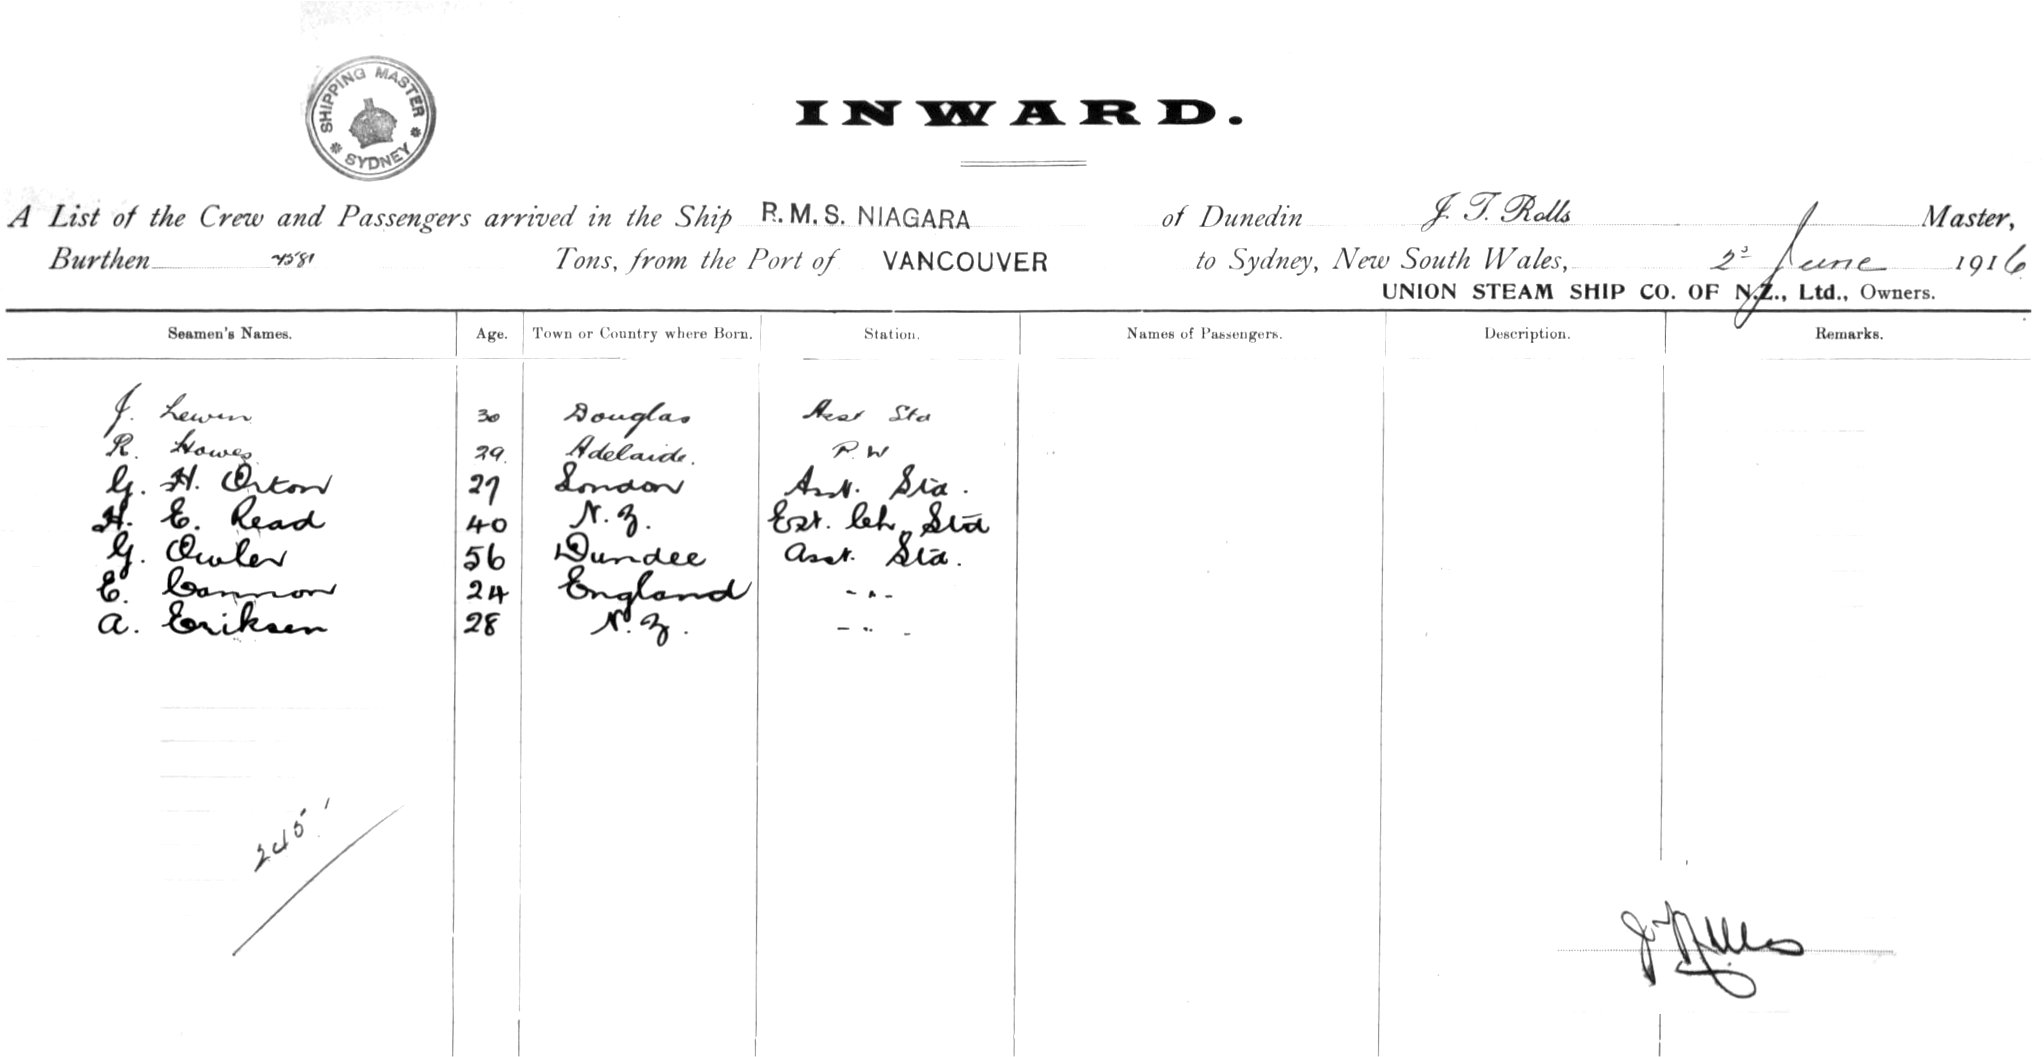 SHIPPING MASTER
* SYDNEY *
INWARD.
A List of the Crew and Passengers arrived in the Ship R.M.S. NIAGARA of Dunedin J. T. Rolls Master,
Burthen 7581 Tons, from the Port of VANCOUVER to Sydney, New South Wales, 2d June 1916
UNION STEAM SHIP CO. OF N.Z., Ltd., Owners.
Seamen's Names. Age. Town or Country where Born. Station. Names of Passengers. Description. Remarks.
J. Lewin 30 Douglas Asst Std
R. Howes 29. Adelaide. P.W
G. H. Orton 27 London Asst. Std.
H. E. Read 40 N.Z. Ext. Ch. Std
G. Owler 56 Dundee Asst. Std.
E. Cannon 24 England - " -
A. Eriksen 28 N.Z. - " -
245
J T Rolls